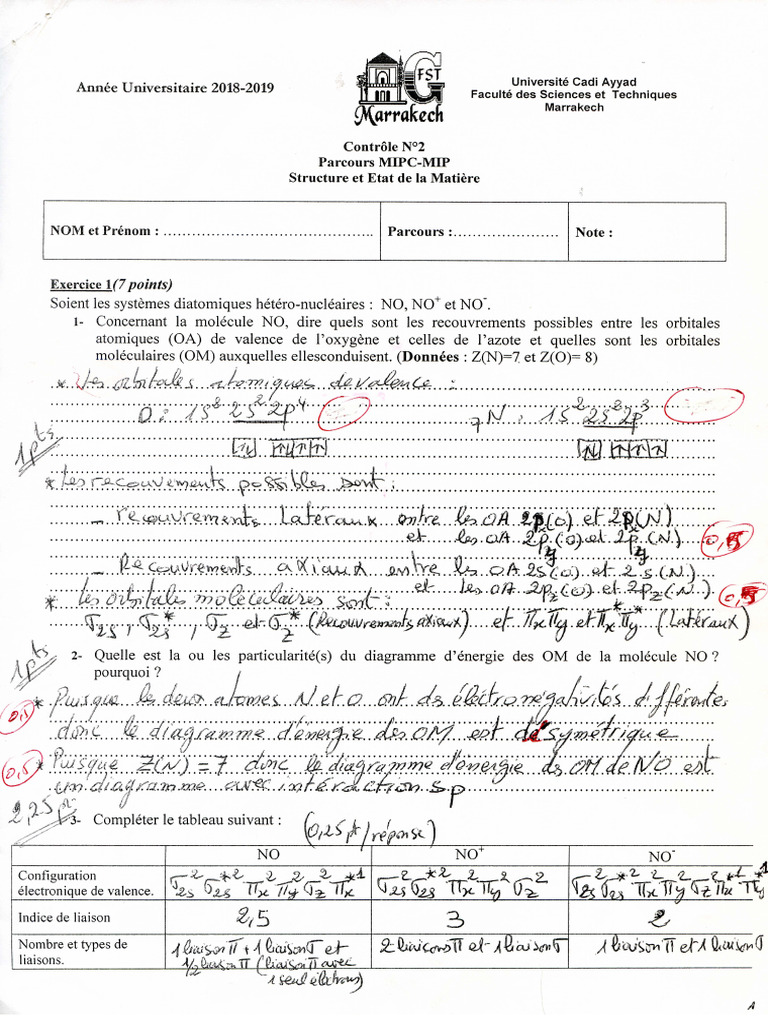 Année Universitaire 2018-2019
FST
Marrakech
Université Cadi Ayyad
Faculté des Sciences et Techniques
Marrakech
Contrôle N°2
Parcours MIPC-MIP
Structure et Etat de la Matière
NOM et Prénom : ……………………………………. Parcours :………………… Note :
Exercice 1(7 points)
Soient les systèmes diatomiques hétéro-nucléaires : NO, NO⁺ et NO⁻.
1- Concernant la molécule NO, dire quels sont les recouvrements possibles entre les orbitales
atomiques (OA) de valence de l'oxygène et celles de l'azote et quelles sont les orbitales
moléculaires (OM) auxquelles ellesconduisent. (Données : Z(N)=7 et Z(O)= 8)
* Les orbitales atomiques de valence :
O : 1s² 2s² 2p⁴ ₇N : 1s² 2s² 2p³
1pts
* Les recouvements possibles sont :
- recouvrements latéraux entre les OA 2pₓ(O) et 2pₓ(N)
et les OA 2p_y(O) et 2p_y(N). 0,5
- Recouvrements axiaux entre les OA 2s(O) et 2s(N)
et les OA 2p_z(O) et 2p_z(N). 0,5
* Les orbitales moléculaires sont :
σ2s, σ2s*, σz et σz* (Recouvrements axiaux) et πx πy et πx* πy* (Latéraux)
1pts
2- Quelle est la ou les particularité(s) du diagramme d'énergie des OM de la molécule NO ?
pourquoi ?
* Puisque les deux atomes N et O ont ds électronégativités différentes
0,5
donc le diagramme d'énergie des OM est désymétrique
0,5 * Puisque Z(N) = 7 donc le diagramme d'énergie ds OM de NO est
un diagramme avec intéraction sp
2,25 pt
3- Compléter le tableau suivant : (0,25 pt/réponse)
NO NO⁺ NO⁻
Configuration
électronique de valence. σ2s² σ2s*² πx² πy² σz² πx*¹ σ2s² σ2s*² πx² πy² σz² σ2s² σ2s*² πx² πy² σz² πx*¹ πy*¹
Indice de liaison 2,5 3 2
Nombre et types de
liaisons. 1 liaison π + 1 liaison σ et 2 liaisons π et 1 liaison σ 1 liaison π et 1 liaison σ
1/2 liaison π (liaison π avec
1 seul életrons)
A